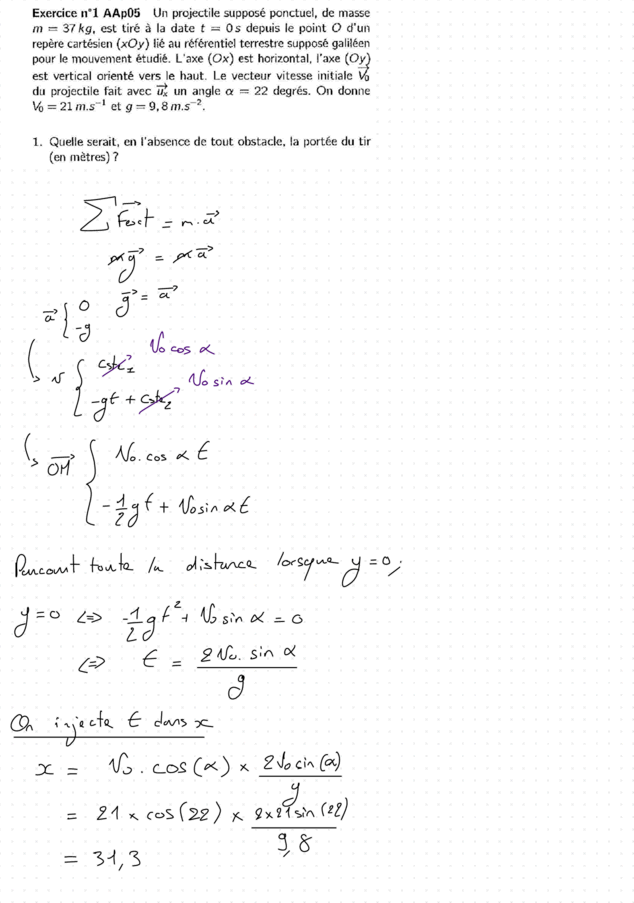 Exercice n°1 AAp05 Un projectile supposé ponctuel, de masse
m = 37 kg, est tiré à la date t = 0 s depuis le point O d'un
repère cartésien (xOy) lié au référentiel terrestre supposé galiléen
pour le mouvement étudié. L'axe (Ox) est horizontal, l'axe (Oy)
est vertical orienté vers le haut. Le vecteur vitesse initiale V₀⃗
du projectile fait avec u⃗ₓ un angle α = 22 degrés. On donne
V₀ = 21 m.s⁻¹ et g = 9,8 m.s⁻².
1. Quelle serait, en l'absence de tout obstacle, la portée du tir
(en mètres) ?
∑ F⃗ext = m.a⃗
mg⃗ = ma⃗
g⃗ = a⃗
a⃗ { 0
-g
V₀ cos α
v { cste₁
V₀ sin α
-gt + cste₂
OM⃗ { V₀. cos α t
-1/2 gt + V₀ sin α t
Parcourt toute la distance lorsque y = 0;
y = 0 <=> -1/2 gt² + V₀ sin α = 0
<=> t = 2V₀. sin α / g
On injecte t dans x
x = V₀ . cos(α) × 2V₀ sin(α) / g
= 21 × cos(22) × 2×21 sin(22) / 9,8
= 31,3